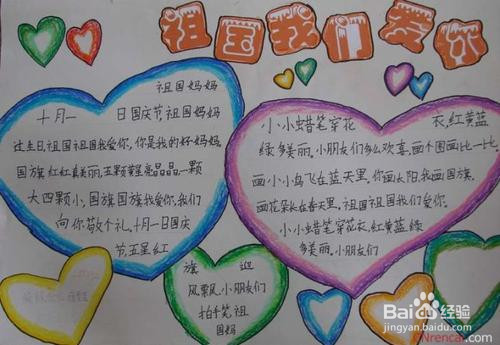 祖国我们爱你
祖国妈妈
十月一 日国庆节祖国妈妈
过生日,祖国祖国我爱你,你是我的好妈妈,
国旗红红真美丽,五颗星星亮晶晶,一颗
大四颗小,国旗国旗我爱你,我们
向你敬个礼,十月一日国庆
节,五星红
小小蜡笔穿花 衣,红黄蓝
绿多美丽,小朋友们多么欢喜,画个图画比一比,
画小小鸟飞在蓝天里,你画太阳,我画国旗,
画花朵长在春天里,祖国祖国我们爱你,
小小蜡笔穿花衣,红黄蓝绿
多美丽,小朋友们
旗 迎
风飘飘,小朋友们
拍手笑,祖
国妈
Baidu经验
jingyan.baidu.com